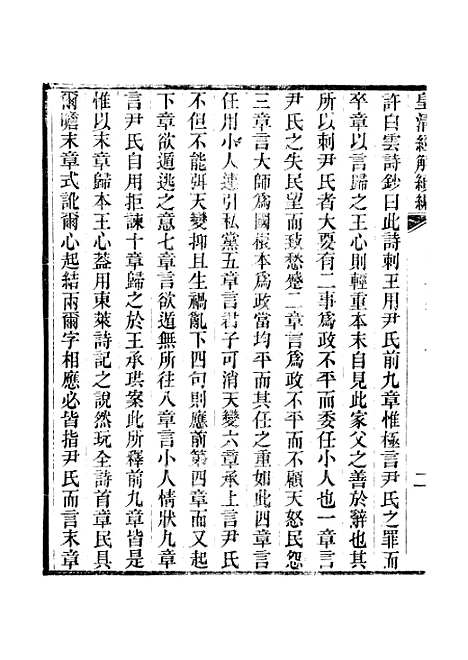 皇清經解續編
二
許白雲詩鈔曰此詩刺王用尹氏前九章惟極言尹氏之罪而
卒章以言歸之王心則輕重本末自見此家父之善於辭也其
所以刺尹氏者大要有二事爲政不平而委任小人也一章言
尹氏之失民望而致愁蹙二章言爲政不平而不顧天怒民怨
三章言大師爲國根本爲政當均平而其任之重如此四章言
任用小人連引私黨五章言君子可消天變六章承上言尹氏
不但不能弭天變抑且生禍亂下四句則應前第四章而又起
下章欲遁逃之意七章言欲遁無所往八章言小人情狀九章
言尹氏自用拒諫十章歸之於王承珙案此所釋前九章皆是
惟以末章歸本王心葢用東萊詩記之說然玩全詩首章民具
爾瞻末章式訛爾心起結兩爾字相應必皆指尹氏而言末章